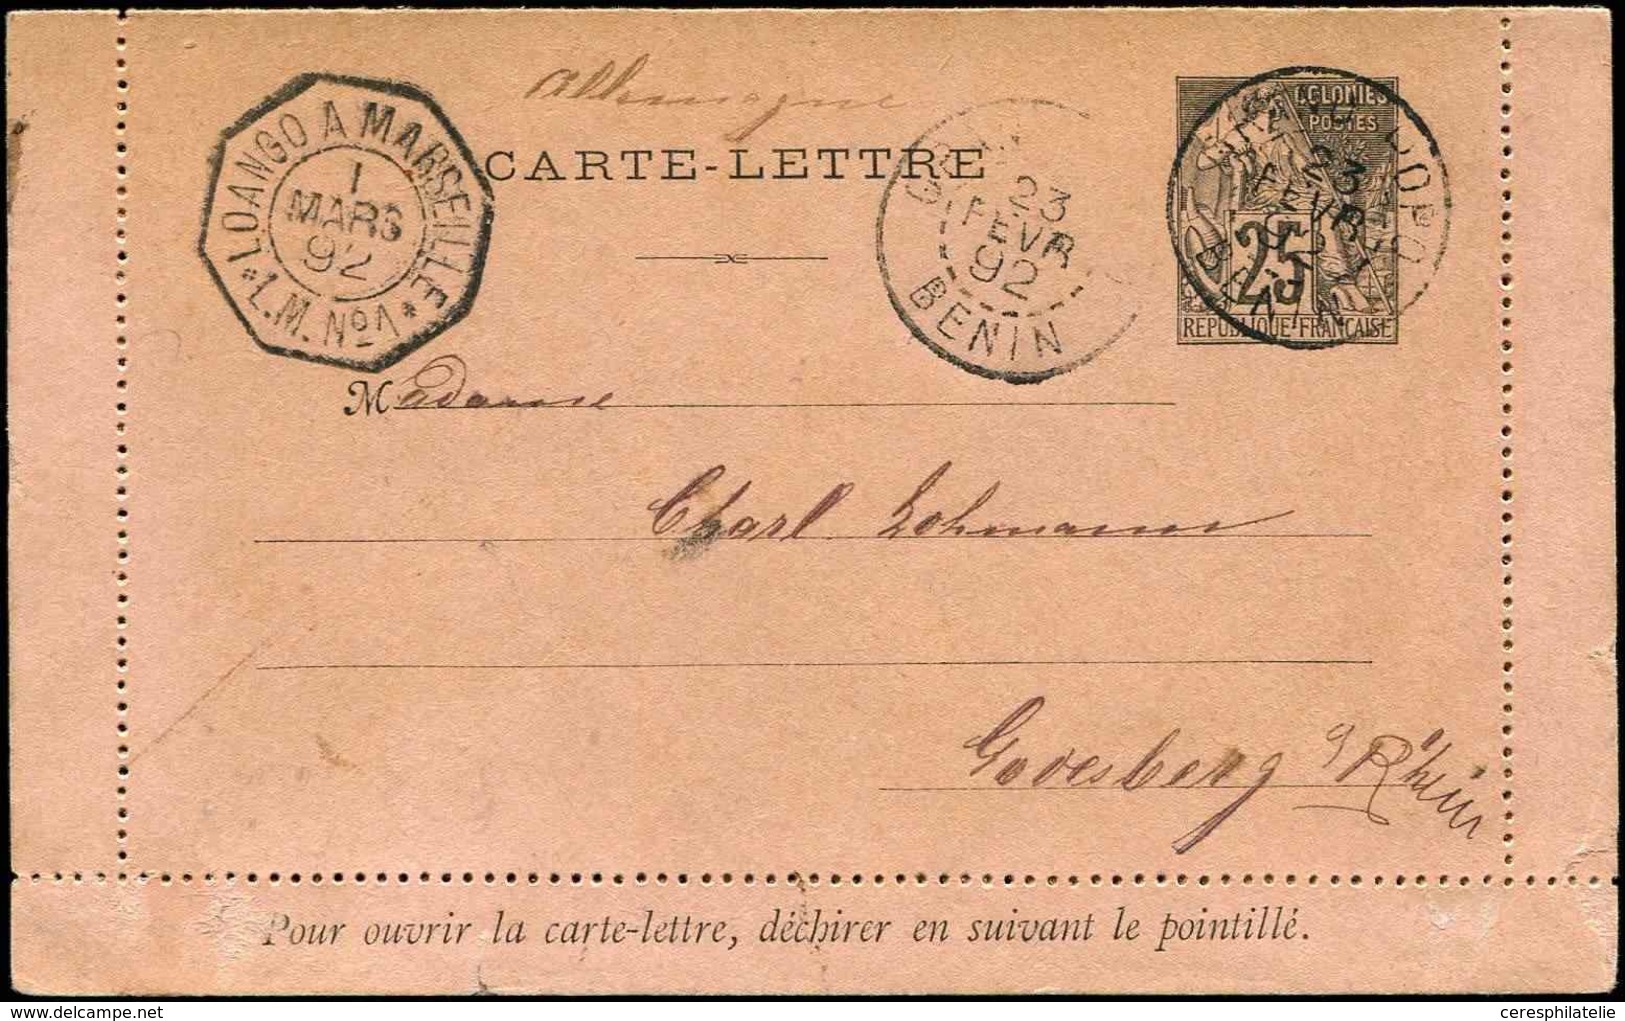 Allemagne
LOANGO A MARSEILLE
1
MARS
92
*L.M. No1*
CARTE-LETTRE
GRAND
23
FEVR
92
BENIN
COLONIES
POSTES
25
REPUBLIQUE FRANCAISE
GRAND POPO
23
FEVR
92
BENIN
Madame
Charl Lohmann
Godesberg a/Rhein
Pour ouvrir la carte-lettre, déchirer en suivant le pointillé.
ceresphilatelie